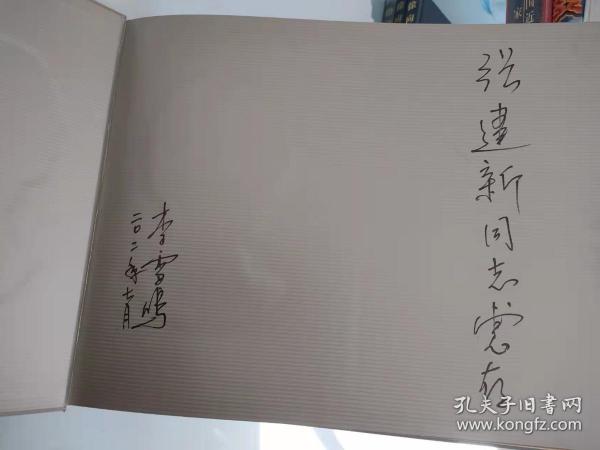 张建新同志惠存
李雪鹏
二〇二年七月
孔夫子旧书网
www.kongfz.com